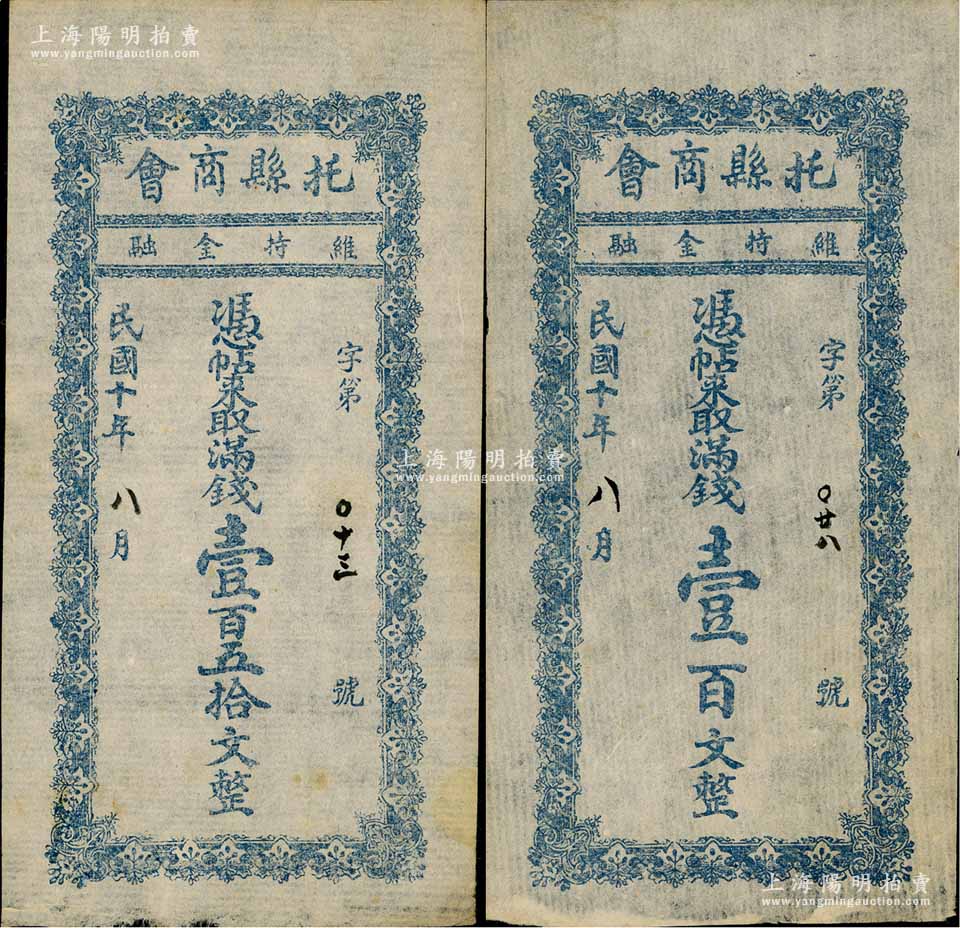 上海陽明拍賣
www.yangmingauction.com
托縣商會
維持金融
字第 〇十三 號
憑帖來取滿錢壹百五拾文整
民國十年 八月
托縣商會
維持金融
字第 〇廿八 號
憑帖來取滿錢壹百文整
民國十年 八月
上海陽明拍賣
www.yangmingauction.com
上海陽明拍賣
www.yangmingauction.com